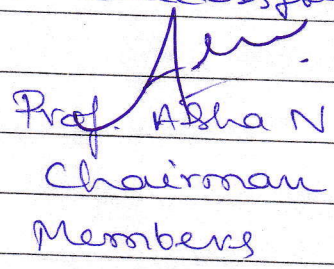 Prof. Asha N
Chairman
Members